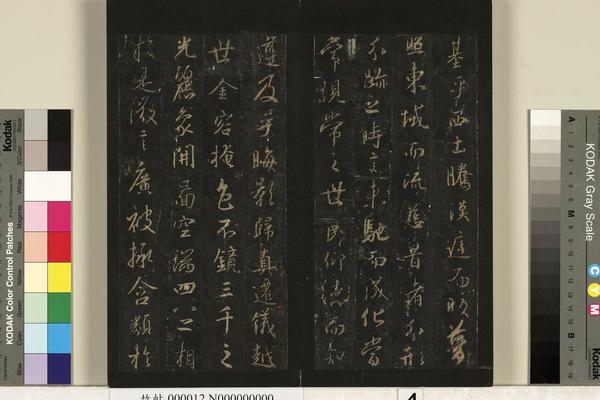 基乎西土騰漢庭而皎夢
照東域而流慈昔者分形
分跡之時言未馳而成化當
常現常之世民仰德而知
遵及乎晦影歸真遷儀越
世金容掩色不鏡三千之
光麗象開圖空端四八之相
於是微言廣被拯含類於
KODAK Color Control Patches
Kodak
Blue
Cyan
Green
Yellow
Red
Magenta
White
3/Color
Black
KODAK Gray Scale
C
Y
M
Kodak
A
1
2
3
4
5
6
M
8
9
10
11
12
13
14
15
B
17
18
19
故帖 000012 N000000000
4